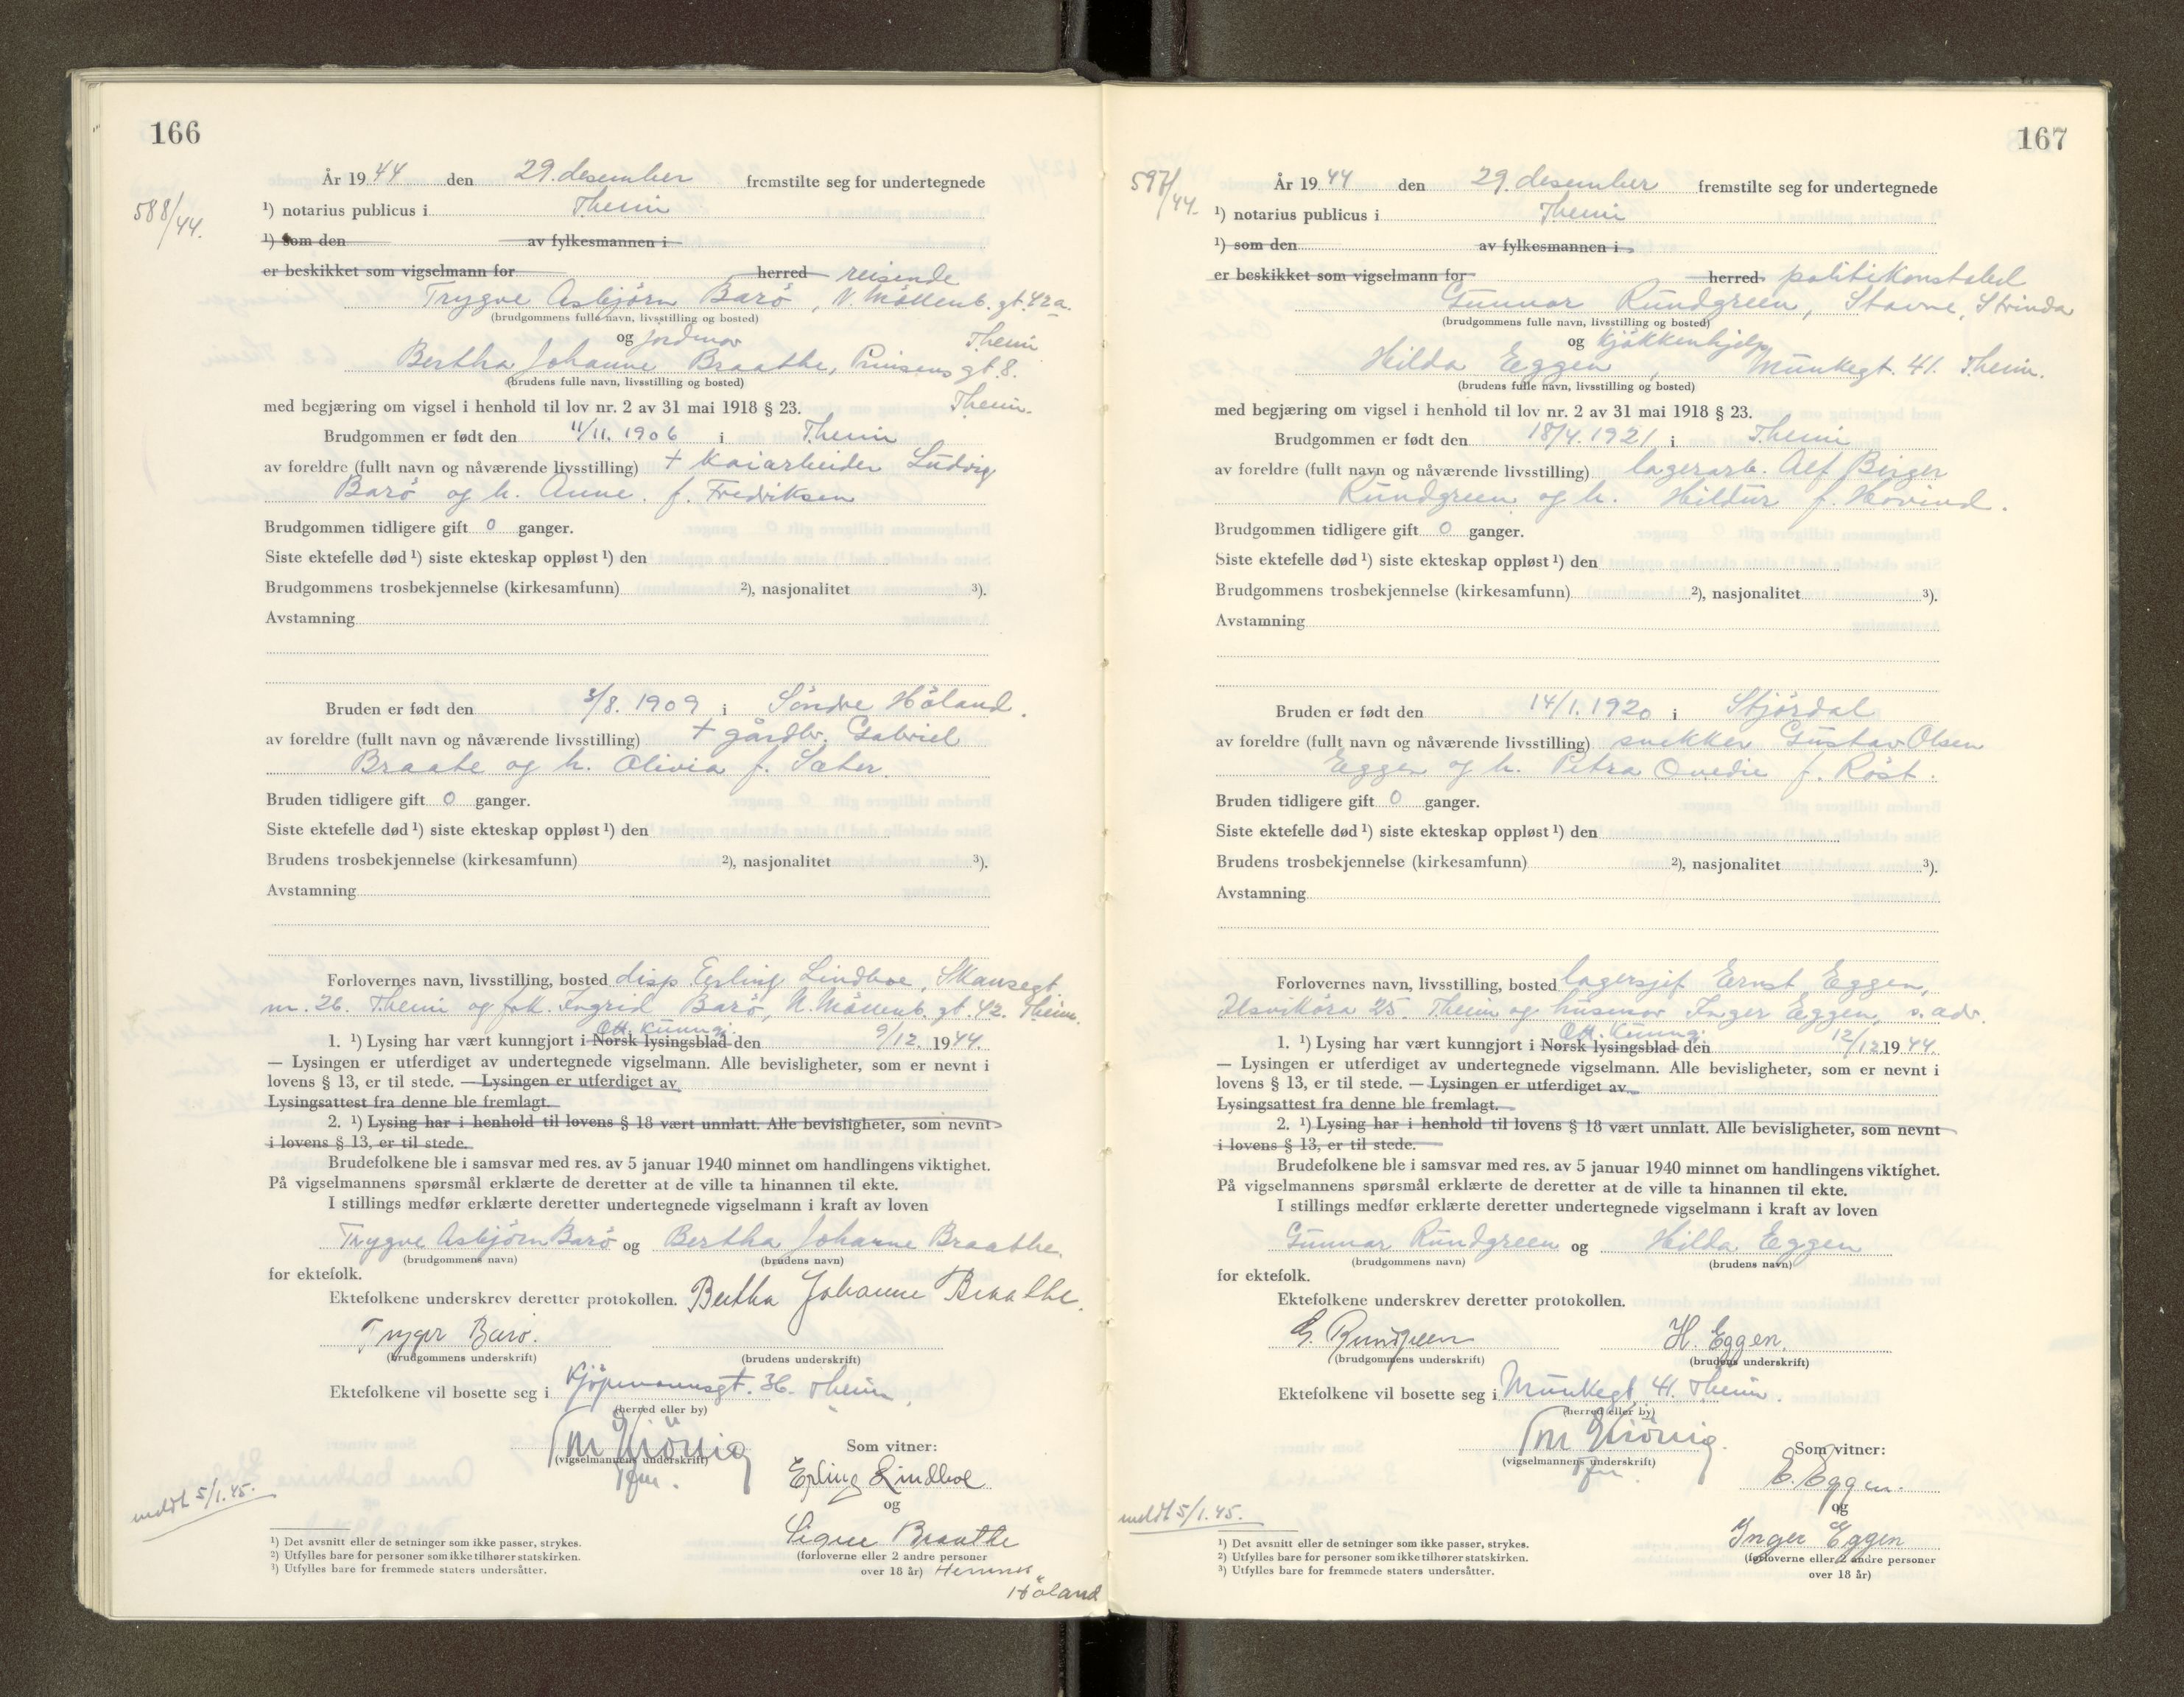 166
588/44.
År 1944 den 29. desember fremstilte seg for undertegnede
¹) notarius publicus i Theim
¹) som den av fylkesmannen i
er beskikket som vigselmann for herred reisende
Trygve Asbjörn Barö, N. Möllenb. gt. 42a.
(brudgommens fulle navn, livsstilling og bosted) Theim
og jordmor
Bertha Johanne Braathe, Prinsens gt. 8.
(brudens fulle navn, livsstilling og bosted)
med begjæring om vigsel i henhold til lov nr. 2 av 31 mai 1918 § 23. Theim.
Brudgommen er født den 11/11. 1906 i Theim
av foreldre (fullt navn og nåværende livsstilling) + kaiarbeider Ludvig
Barö og h. Anne. f. Fredriksen
Brudgommen tidligere gift 0 ganger.
Siste ektefelle død ¹) siste ekteskap oppløst ¹) den
Brudgommens trosbekjennelse (kirkesamfunn) ²), nasjonalitet ³).
Avstamning
Bruden er født den 3/8. 1909 i Söndre Höland.
av foreldre (fullt navn og nåværende livsstilling) + gårdbr. Gabriel
Braate og h. Olivia f. Sæter.
Bruden tidligere gift 0 ganger.
Siste ektefelle død ¹) siste ekteskap oppløst ¹) den
Brudens trosbekjennelse (kirkesamfunn) ²), nasjonalitet ³).
Avstamning
Forlovernes navn, livsstilling, bosted disp. Erling Lindboe, Skansegt
nr. 26. Theim og frk. Ingrid Barö, N. Möllenb. gt. 42. Theim.
Off. kunngj.
1. ¹) Lysing har vært kunngjort i Norsk lysingsblad den 9/12. 1944.
— Lysingen er utferdiget av undertegnede vigselmann. Alle bevisligheter, som er nevnt i
lovens § 13, er til stede. — Lysingen er utferdiget av
Lysingsattest fra denne ble fremlagt.
2. ¹) Lysing har i henhold til lovens § 18 vært unnlatt. Alle bevisligheter, som nevnt
i lovens § 13, er til stede.
Brudefolkene ble i samsvar med res. av 5 januar 1940 minnet om handlingens viktighet.
På vigselmannens spørsmål erklærte de deretter at de ville ta hinannen til ekte.
I stillings medfør erklærte deretter undertegnede vigselmann i kraft av loven
Trygve Asbjörn Barö og Bertha Johanne Braathe.
(brudgommens navn) (brudens navn)
for ektefolk.
Ektefolkene underskrev deretter protokollen. Bertha Johanne Braathe.
Trygve Barö.
(brudgommens underskrift) (brudens underskrift)
Ektefolkene vil bosette seg i Kjöpmannsgt. 36. Theim.
(herred eller by)
Som vitner:
(vigselmannens underskrift)
Erling Lindboe
og
meldt 5/1.45.
Signe Braathe
(forloverne eller 2 andre personer
over 18 år) Hemnes
Höland
¹) Det avsnitt eller de setninger som ikke passer, strykes.
²) Utfylles bare for personer som ikke tilhører statskirken.
³) Utfylles bare for fremmede staters undersåtter.
167
597/44.
År 1944 den 29. desember fremstilte seg for undertegnede
¹) notarius publicus i Theim
¹) som den av fylkesmannen i
er beskikket som vigselmann for herred politikonstabel
Gunnar Rundgreen, Stavne, Strinda
(brudgommens fulle navn, livsstilling og bosted)
og kjökkenhjelp
Hilda Eggen, Munkegt. 41. Theim.
(brudens fulle navn, livsstilling og bosted)
med begjæring om vigsel i henhold til lov nr. 2 av 31 mai 1918 § 23.
Brudgommen er født den 18/4. 1921 i Theim
av foreldre (fullt navn og nåværende livsstilling) lagerarb. Alf Birger
Rundgreen og h. Hildur f. Hovind.
Brudgommen tidligere gift 0 ganger.
Siste ektefelle død ¹) siste ekteskap oppløst ¹) den
Brudgommens trosbekjennelse (kirkesamfunn) ²), nasjonalitet ³).
Avstamning
Bruden er født den 14/1. 1920 i Stjördal
av foreldre (fullt navn og nåværende livsstilling) snekker Gustav Olsen
Eggen og h. Petra Ovedie f. Röst.
Bruden tidligere gift 0 ganger.
Siste ektefelle død ¹) siste ekteskap oppløst ¹) den
Brudens trosbekjennelse (kirkesamfunn) ²), nasjonalitet ³).
Avstamning
Forlovernes navn, livsstilling, bosted lagersjef Ernst Eggen,
Ilsviköra 25. Theim og husmor Inger Eggen, s. adr.
Off. kunngj.
1. ¹) Lysing har vært kunngjort i Norsk lysingsblad den 12/12 1944.
— Lysingen er utferdiget av undertegnede vigselmann. Alle bevisligheter, som er nevnt i
lovens § 13, er til stede. — Lysingen er utferdiget av
Lysingsattest fra denne ble fremlagt.
2. ¹) Lysing har i henhold til lovens § 18 vært unnlatt. Alle bevisligheter, som nevnt
i lovens § 13, er til stede.
Brudefolkene ble i samsvar med res. av 5 januar 1940 minnet om handlingens viktighet.
På vigselmannens spørsmål erklærte de deretter at de ville ta hinannen til ekte.
I stillings medfør erklærte deretter undertegnede vigselmann i kraft av loven
Gunnar Rundgreen og Hilda Eggen
(brudgommens navn) (brudens navn)
for ektefolk.
Ektefolkene underskrev deretter protokollen.
G. Rundgreen H. Eggen.
(brudgommens underskrift) (brudens underskrift)
Ektefolkene vil bosette seg i Munkegt. 41. Theim.
(herred eller by)
Som vitner:
(vigselmannens underskrift)
E. Eggen.
og
meldt 5/1.45.
Inger Eggen
(forloverne eller 2 andre personer
over 18 år)
¹) Det avsnitt eller de setninger som ikke passer, strykes.
²) Utfylles bare for personer som ikke tilhører statskirken.
³) Utfylles bare for fremmede staters undersåtter.